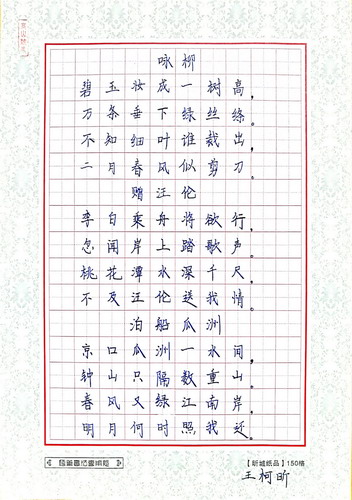 咏柳
碧玉妆成一树高，
万条垂下绿丝绦。
不知细叶谁裁出，
二月春风似剪刀。
赠汪伦
李白乘舟将欲行，
忽闻岸上踏歌声。
桃花潭水深千尺，
不及汪伦送我情。
泊船瓜洲
京口瓜洲一水间，
钟山只隔数重山。
春风又绿江南岸，
明月何时照我还。
【新城纸品】150格
王柯昕